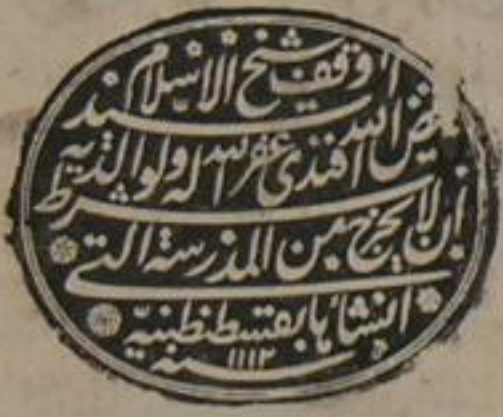 اوقف شيخ الاسلام سيد
فيض الله افندى غفر الله له ولوالديه
بشرط ان لا يخرج من المدرسة التى
انشأها بقسطنطنية
سنه ١١١٢